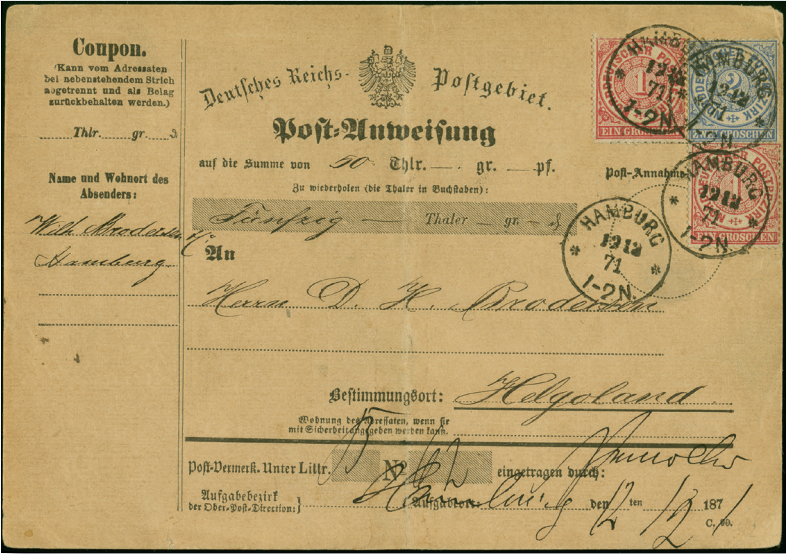 Coupon.
(Kann vom Adressaten
bei nebenstehendem Strich
abgetrennt und als Belag
zurückbehalten werden.)
Thlr. gr.
Name und Wohnort des
Absenders:
Wilh.
Hamburg
Deutsches Reichs- Postgebiet.
Post-Anweisung
auf die Summe von 50 Thlr. — gr. — pf.
Zu wiederholen (die Thaler in Buchstaben):
Fünfzig — Thaler — gr. —
Post-Annahme
An
Herrn D. H. Brodersen
Bestimmungsort: Helgoland.
Wohnung des Adressaten, wenn sie
mit Sicherheit angegeben werden kann.
Post-Vermerk. Unter Littr. No eingetragen durch:
Aufgabebezirk
der Ober-Post-Direction:} Hamburg Aufgabeort: den 12 ten 12 1871
C. 99.
1
EIN GROSCHEN
2
1
EIN GROSCHEN
HAMBURG
12 12
71
1-2N.
HAMBURG
12 12
71
HAMBURG
12 12
71
1-2N.
HAMBURG
12 12
71
1-2N.